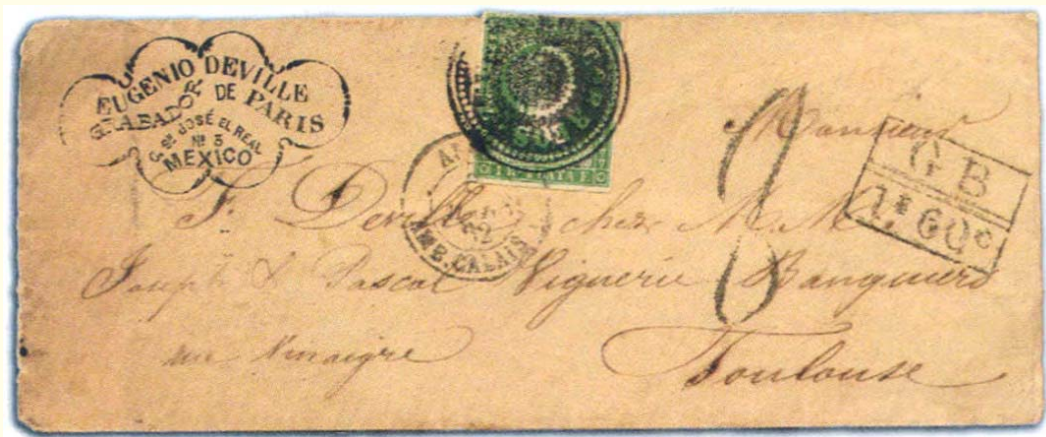 EUGENIO DEVILLE
GRABADOR DE PARIS
C. Sn. JOSÉ EL REAL
Nº 3
MEXICO
AMB. CALAIS
GB
1F 60c
8
Monsieur
F. Deville chez M.M.
Joseph & Pascal Viguerie Banquiers
Toulouse